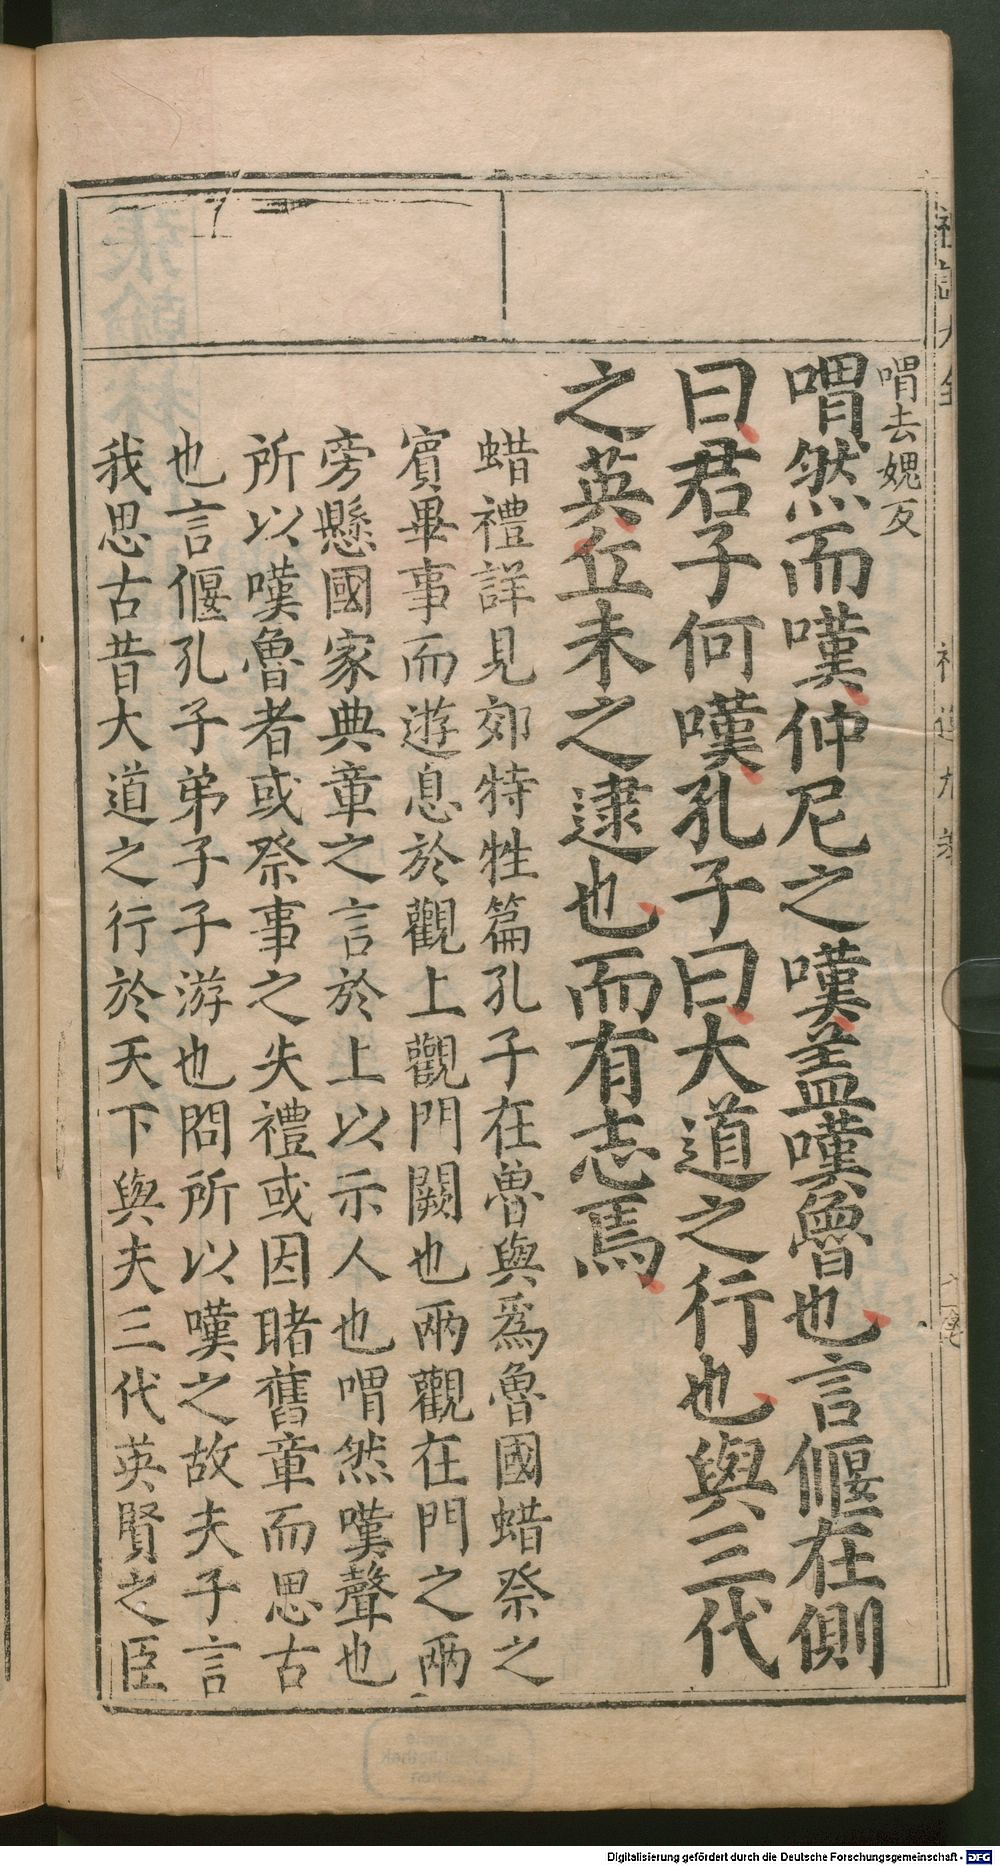 喟去媿反
喟然而嘆仲尼之嘆盖嘆魯也言偃在側
曰君子何嘆孔子曰大道之行也與三代
之英丘未之逮也而有志焉
蜡禮詳見郊特牲篇孔子在魯與爲魯國蜡祭之
賓畢事而遊息於觀上觀門闕也兩觀在門之兩
旁懸國家典章之言於上以示人也喟然嘆聲也
所以嘆魯者或祭事之失禮或因睹舊章而思古
也言偃孔子弟子子游也問所以嘆之故夫子言
我思古昔大道之行於天下與夫三代英賢之臣
Digitalisierung gefördert durch die Deutsche Forschungsgemeinschaft - DFG